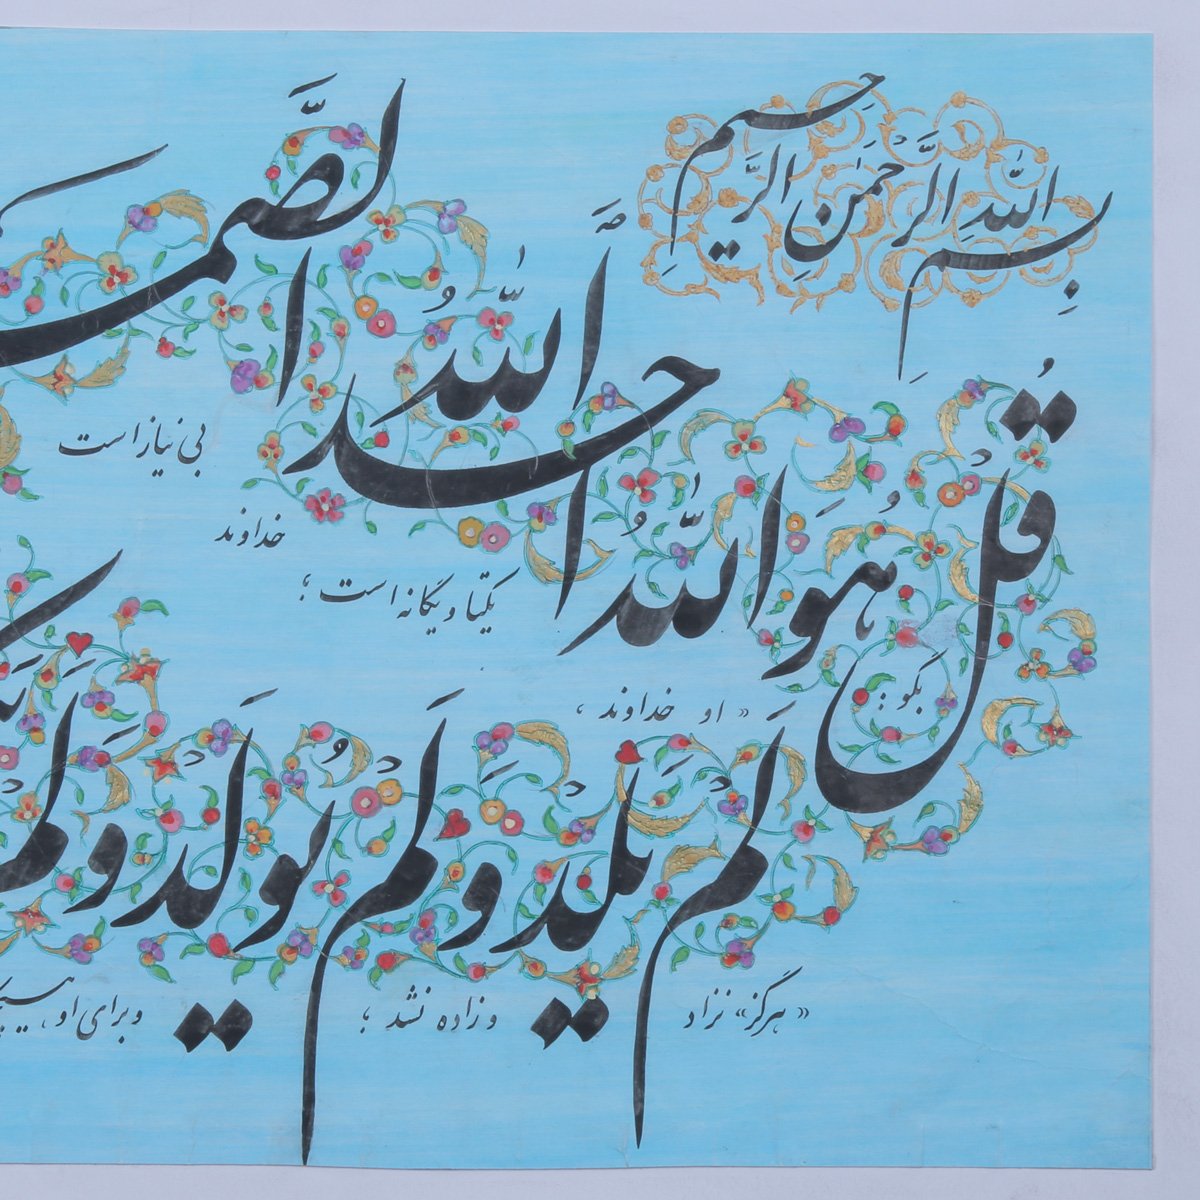 بسم الله الرحمن الرحیم
قُل هُوَ اللّٰهُ اَحَد
اللّٰهُ الصَّمَد
بگو:
« او خداوند ،
یکتا و یگانه است ؛
خداوند
بی نیاز است
لَم یَلِد وَ لَم یُولَد وَ لَم
« هرگز» نزاد
و زاده نشد ؛
و برای او،